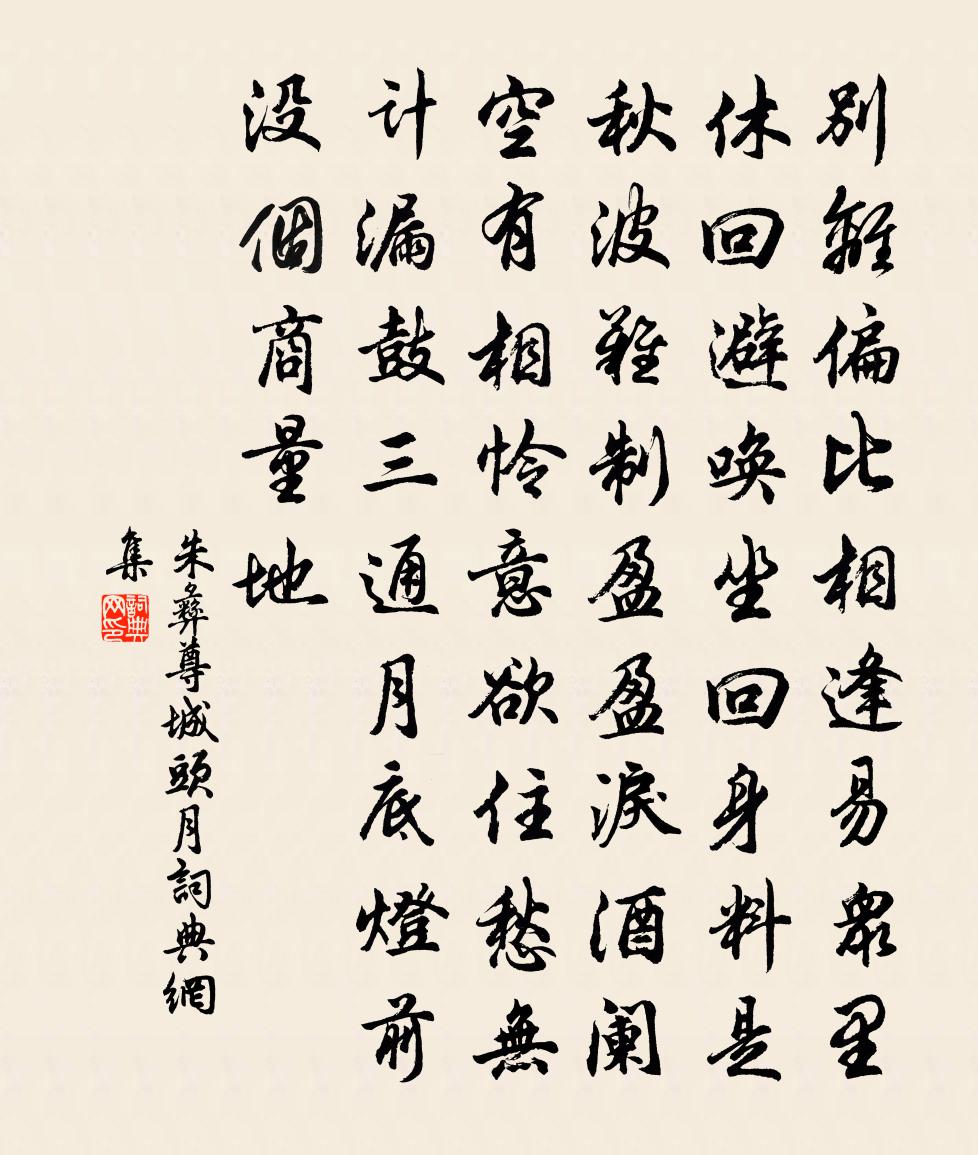 別離偏比相逢易眾里
休回避喚坐回身料是
秋波難制盈盈淚酒阑
空有相怜意欲住愁無
计漏鼓三通月底燈前
没個商量地
朱彝尊城頭月詞典網
集
詞典網印